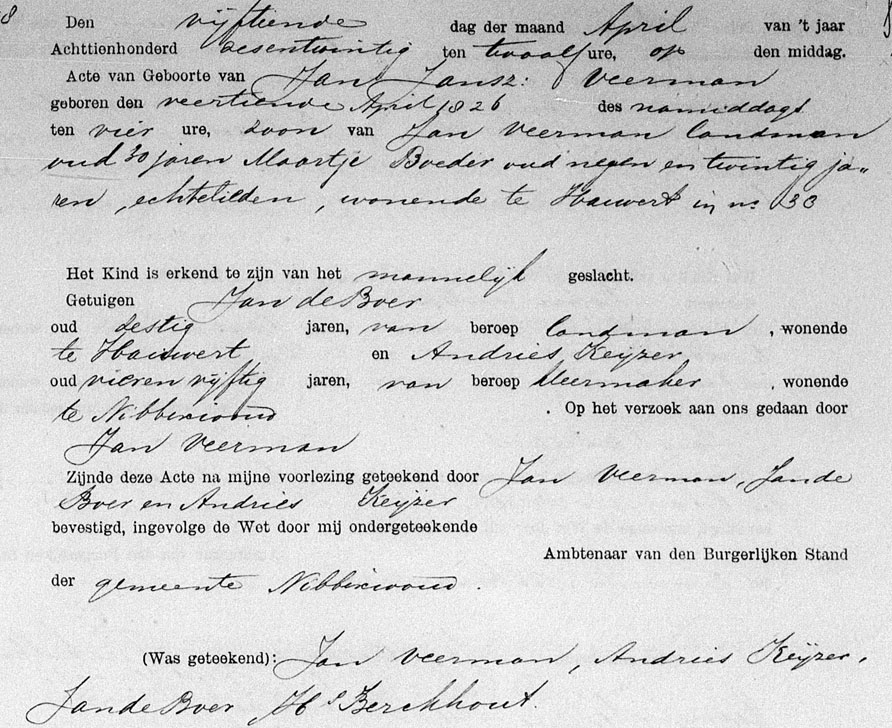 Den vijftiende dag der maand April van 't jaar
Achttienhonderd zesentwintig ten twaalf ure, op den middag.
Acte van Geboorte van Jan Jansz: Veerman
geboren den veertiende April 1826 des namiddags
ten vier ure, zoon van Jan Veerman landman
oud 30 jaren Maartje Boeder oud negen en twintig ja„
ren, echtelieden, wonende te Hauwert in no 33
Het Kind is erkend te zijn van het mannelijk geslacht.
Getuigen Jan de Boer
oud destig jaren, van beroep landman, wonende
te Hauwert en Andries Keijzer
oud vieren vijftig jaren, van beroep kleermaker, wonende
te Nibbixwoud. Op het verzoek aan ons gedaan door
Jan Veerman
Zijnde deze Acte na mijne voorlezing geteekend door Jan Veerman, Jan de
Boer en Andries Keijzer
bevestigd, ingevolge de Wet door mij ondergeteekende
Ambtenaar van den Burgerlijken Stand
der gemeente Nibbixwoud.
(Was geteekend): Jan Veerman, Andries Keijzer,
Jan de Boer Hs Berckhout.